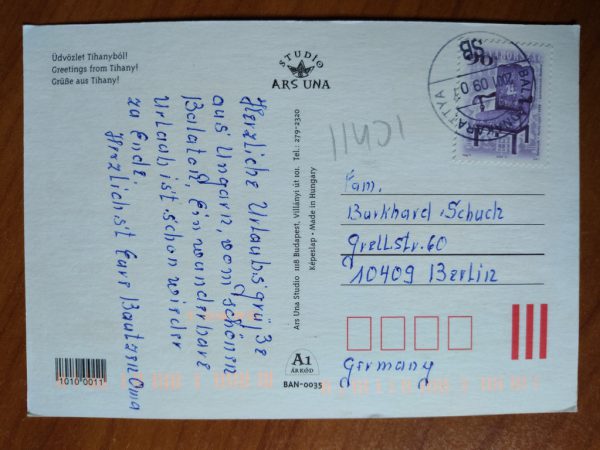 Üdvözlet Tihanyból!
Greetings from Tihany!
Grüße aus Tihany!
STUDIO
ARS UNA
Herzliche Urlaubsgrüße
aus Ungarn, vom schönen
Balaton, Ein wunderbare
Urlaub ist schon wieder
zu Ende.
Herzlichst Eure Bautzen Oma
Ars Una Studio 1118 Budapest, Villányi út 101. Tel.: 279-2320
Képeslap • Made in Hungary
11401
Fam.
Burkhard Schuch
Grellstr. 60
10409 Berlin
Germany
A1
ÁRKÓD
BAN-0035
1010 0011